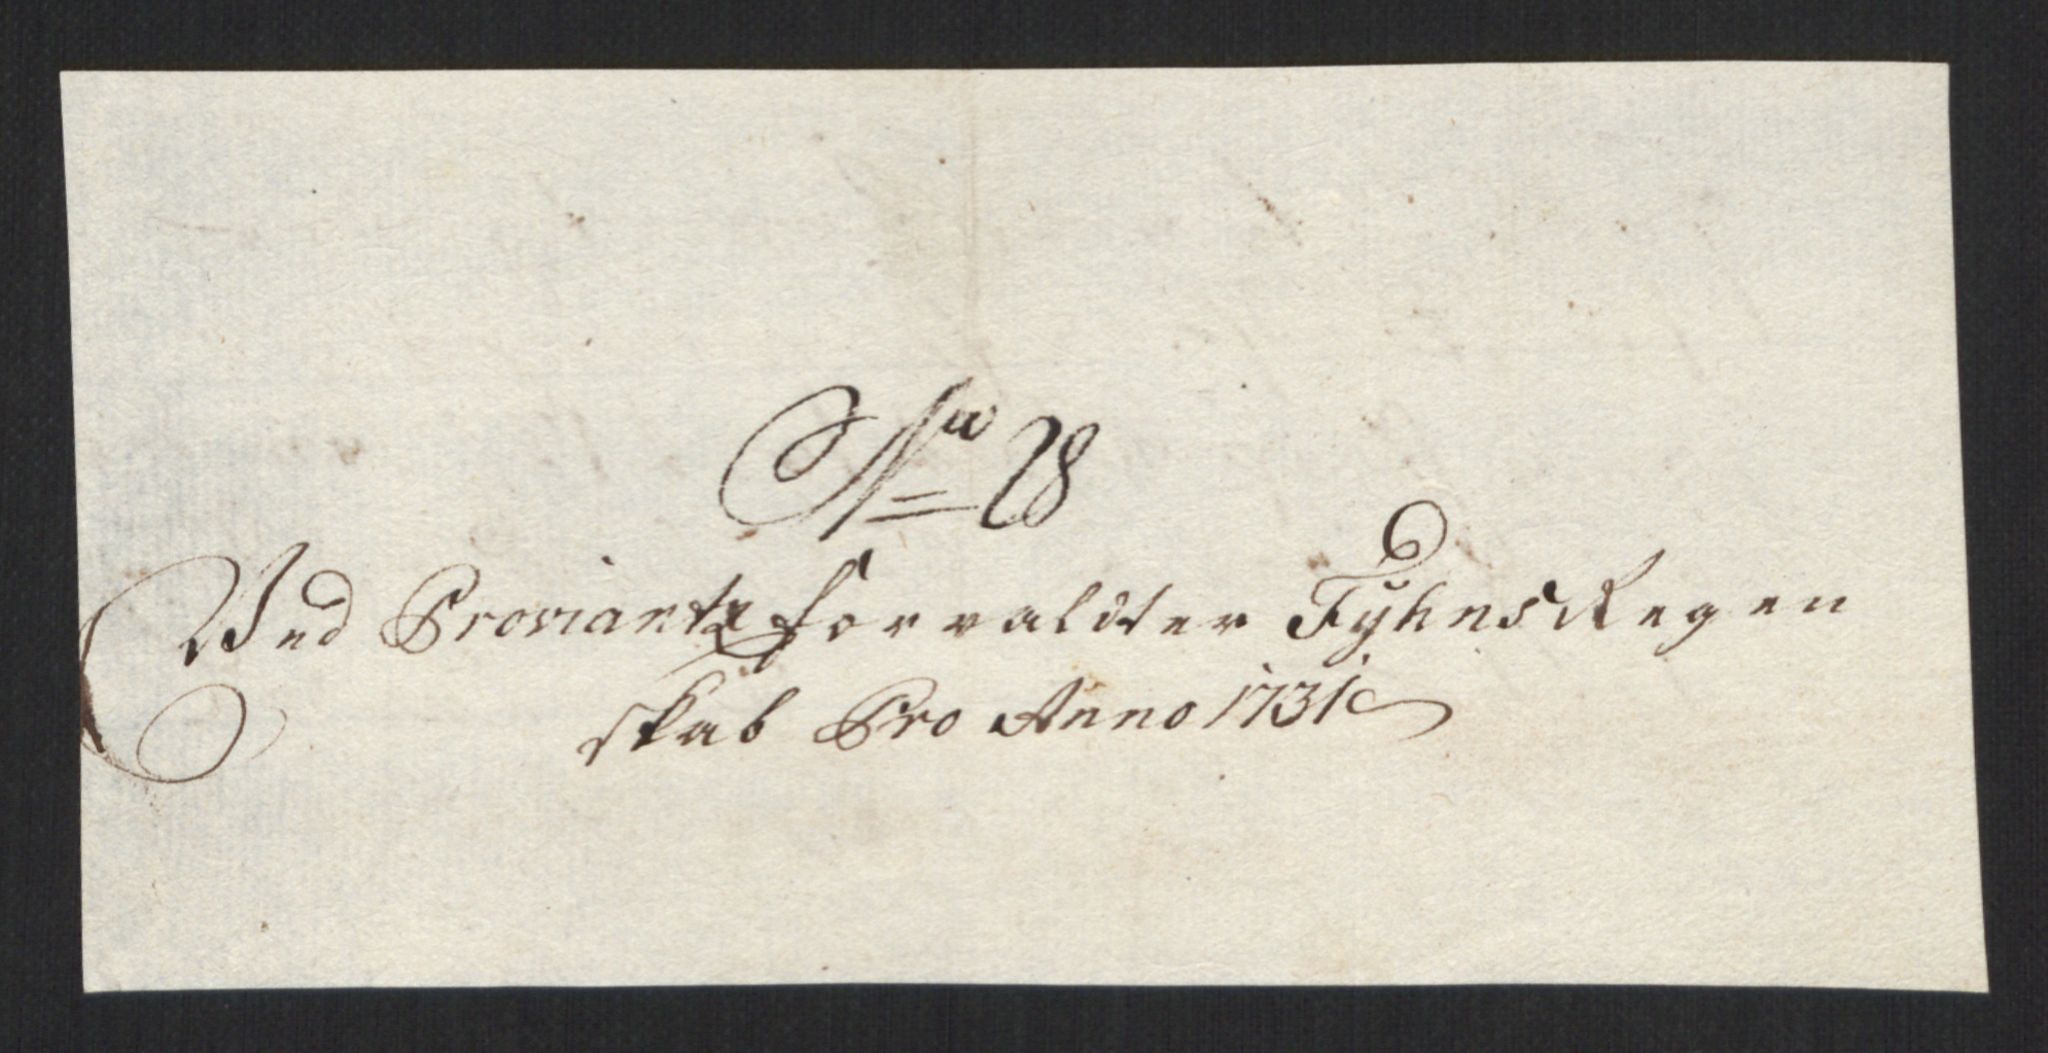 No 28
Ved Proviantz forvaldter Fyhns Regen
skab Pro Anno 1731